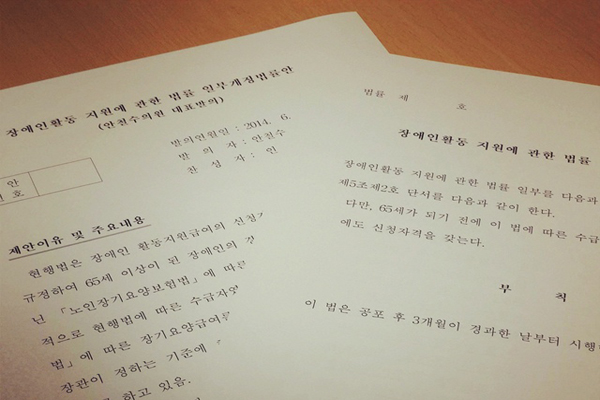 장애인활동 지원에 관한 법률 일부개정법률안
(안철수의원 대표발의)
안
호
발의연월일 : 2014. 6.
발 의 자 : 안철수
찬 성 자 : 인
제안이유 및 주요내용
현행법은 장애인 활동지원급여의 신청자
규정하여 65세 이상이 된 장애인의 경
닌 「노인장기요양보험법」에 따른
적으로 현행법에 따른 수급자였
법」에 따른 장기요양급여를
장관이 정하는 기준에
하고 있음.
법률 제 호
장애인활동 지원에 관한 법률
장애인활동 지원에 관한 법률 일부를 다음과
제5조제2호 단서를 다음과 같이 한다.
다만, 65세가 되기 전에 이 법에 따른 수급
에도 신청자격을 갖는다.
부 칙
이 법은 공포 후 3개월이 경과한 날부터 시행